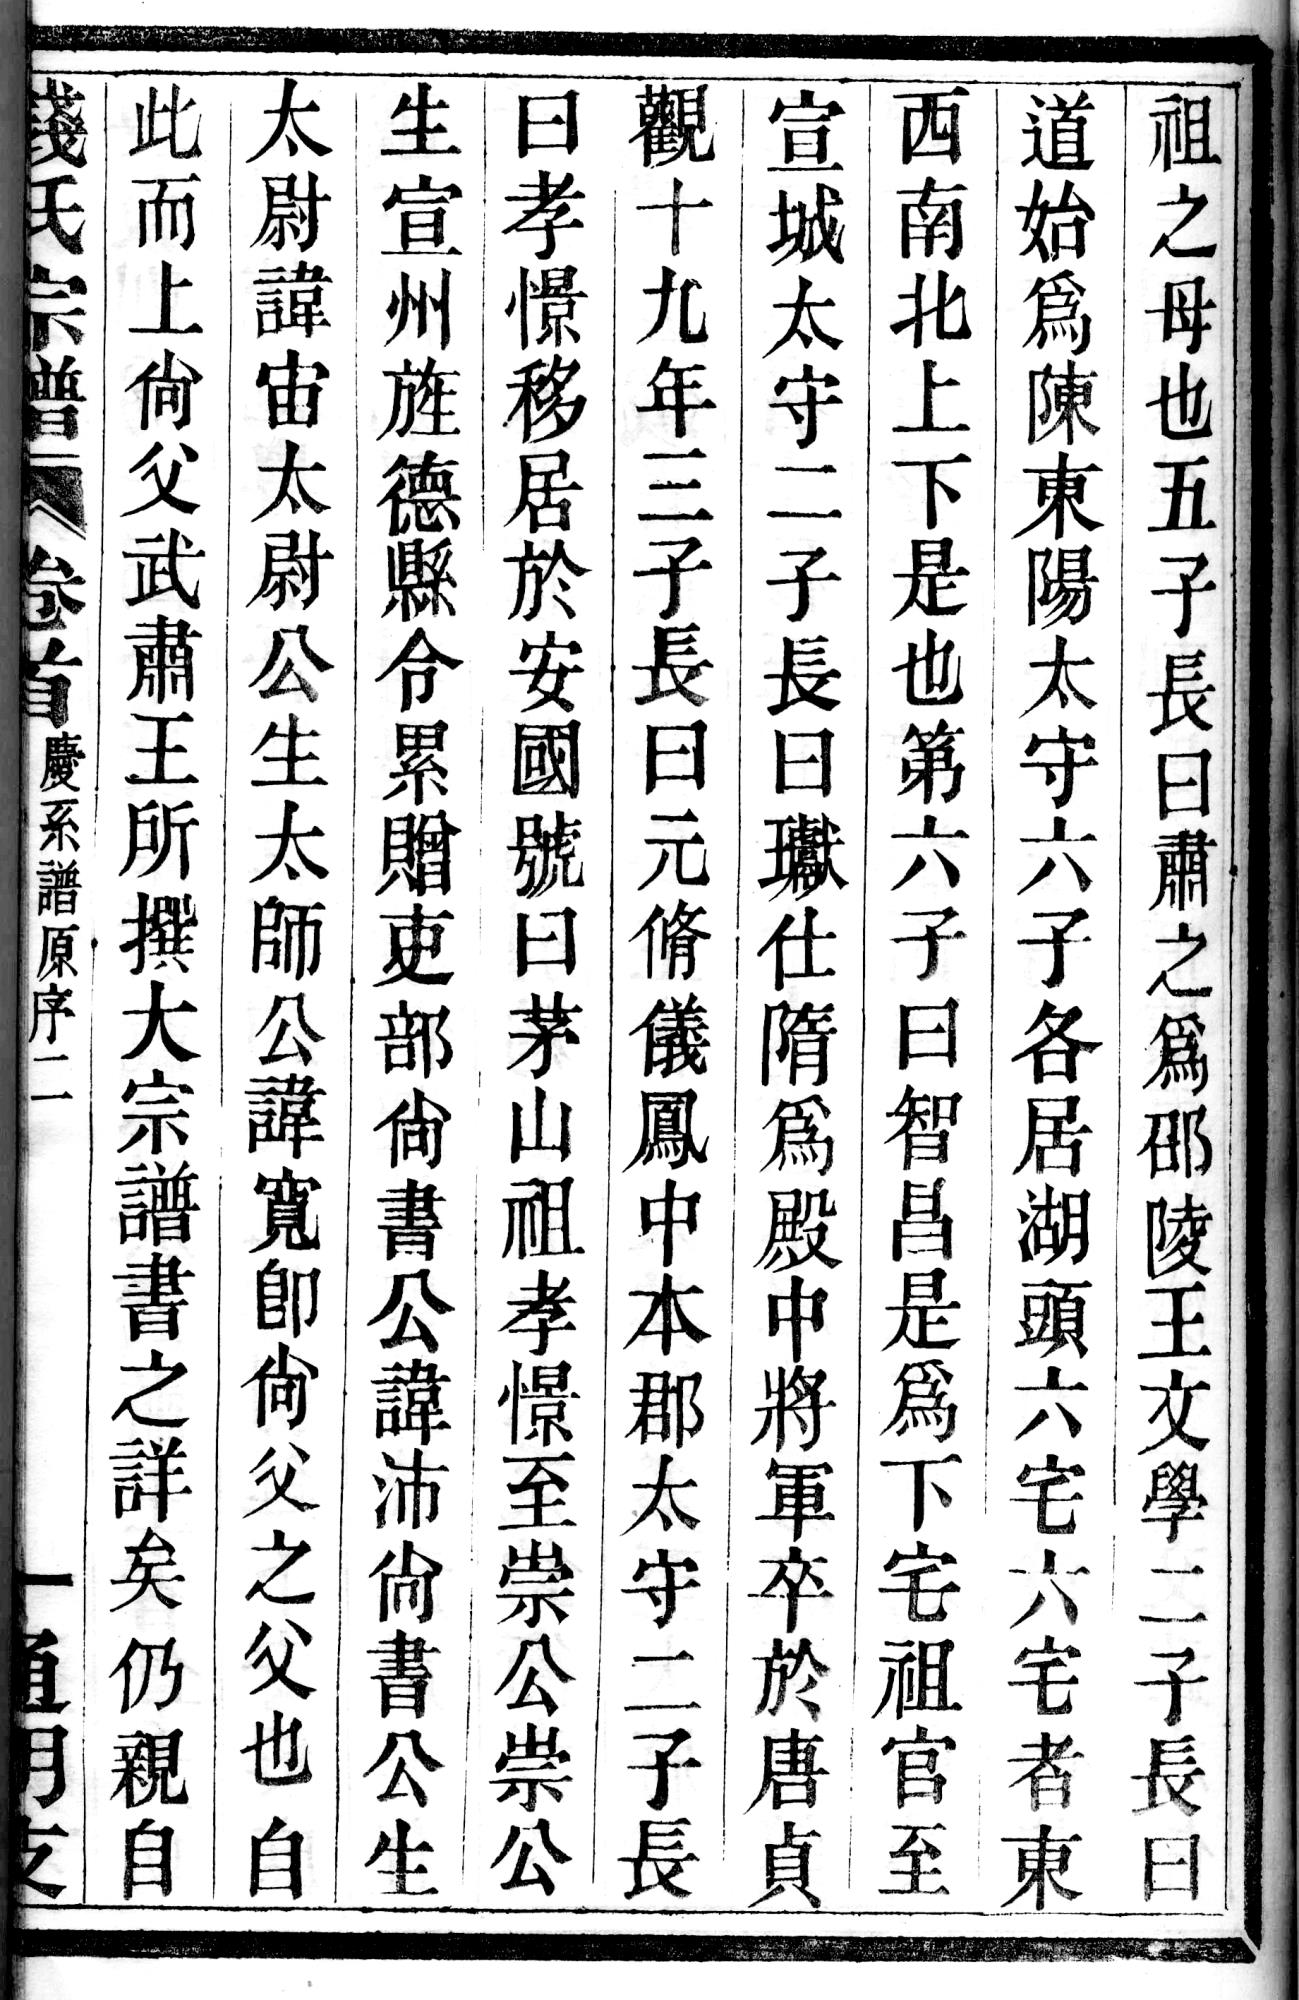 祖之母也五子長曰肅之爲邵陵王文學二子長曰
道始爲陳東陽太守六子各居湖頭六宅六宅者東
西南北上下是也第六子曰智昌是爲下宅祖官至
宣城太守二子長曰瓛仕隋爲殿中將軍卒於唐貞
觀十九年三子長曰元脩儀鳳中本郡太守二子長
曰孝憬移居於安國號曰茅山祖孝憬至崇公崇公
生宣州旌德縣令累贈吏部尙書公諱沛尙書公生
太尉諱宙太尉公生太師公諱寬卽尙父之父也自
此而上尙父武肅王所撰大宗譜書之詳矣仍親自
錢氏宗譜 卷首 慶系譜原序二 一 通明支